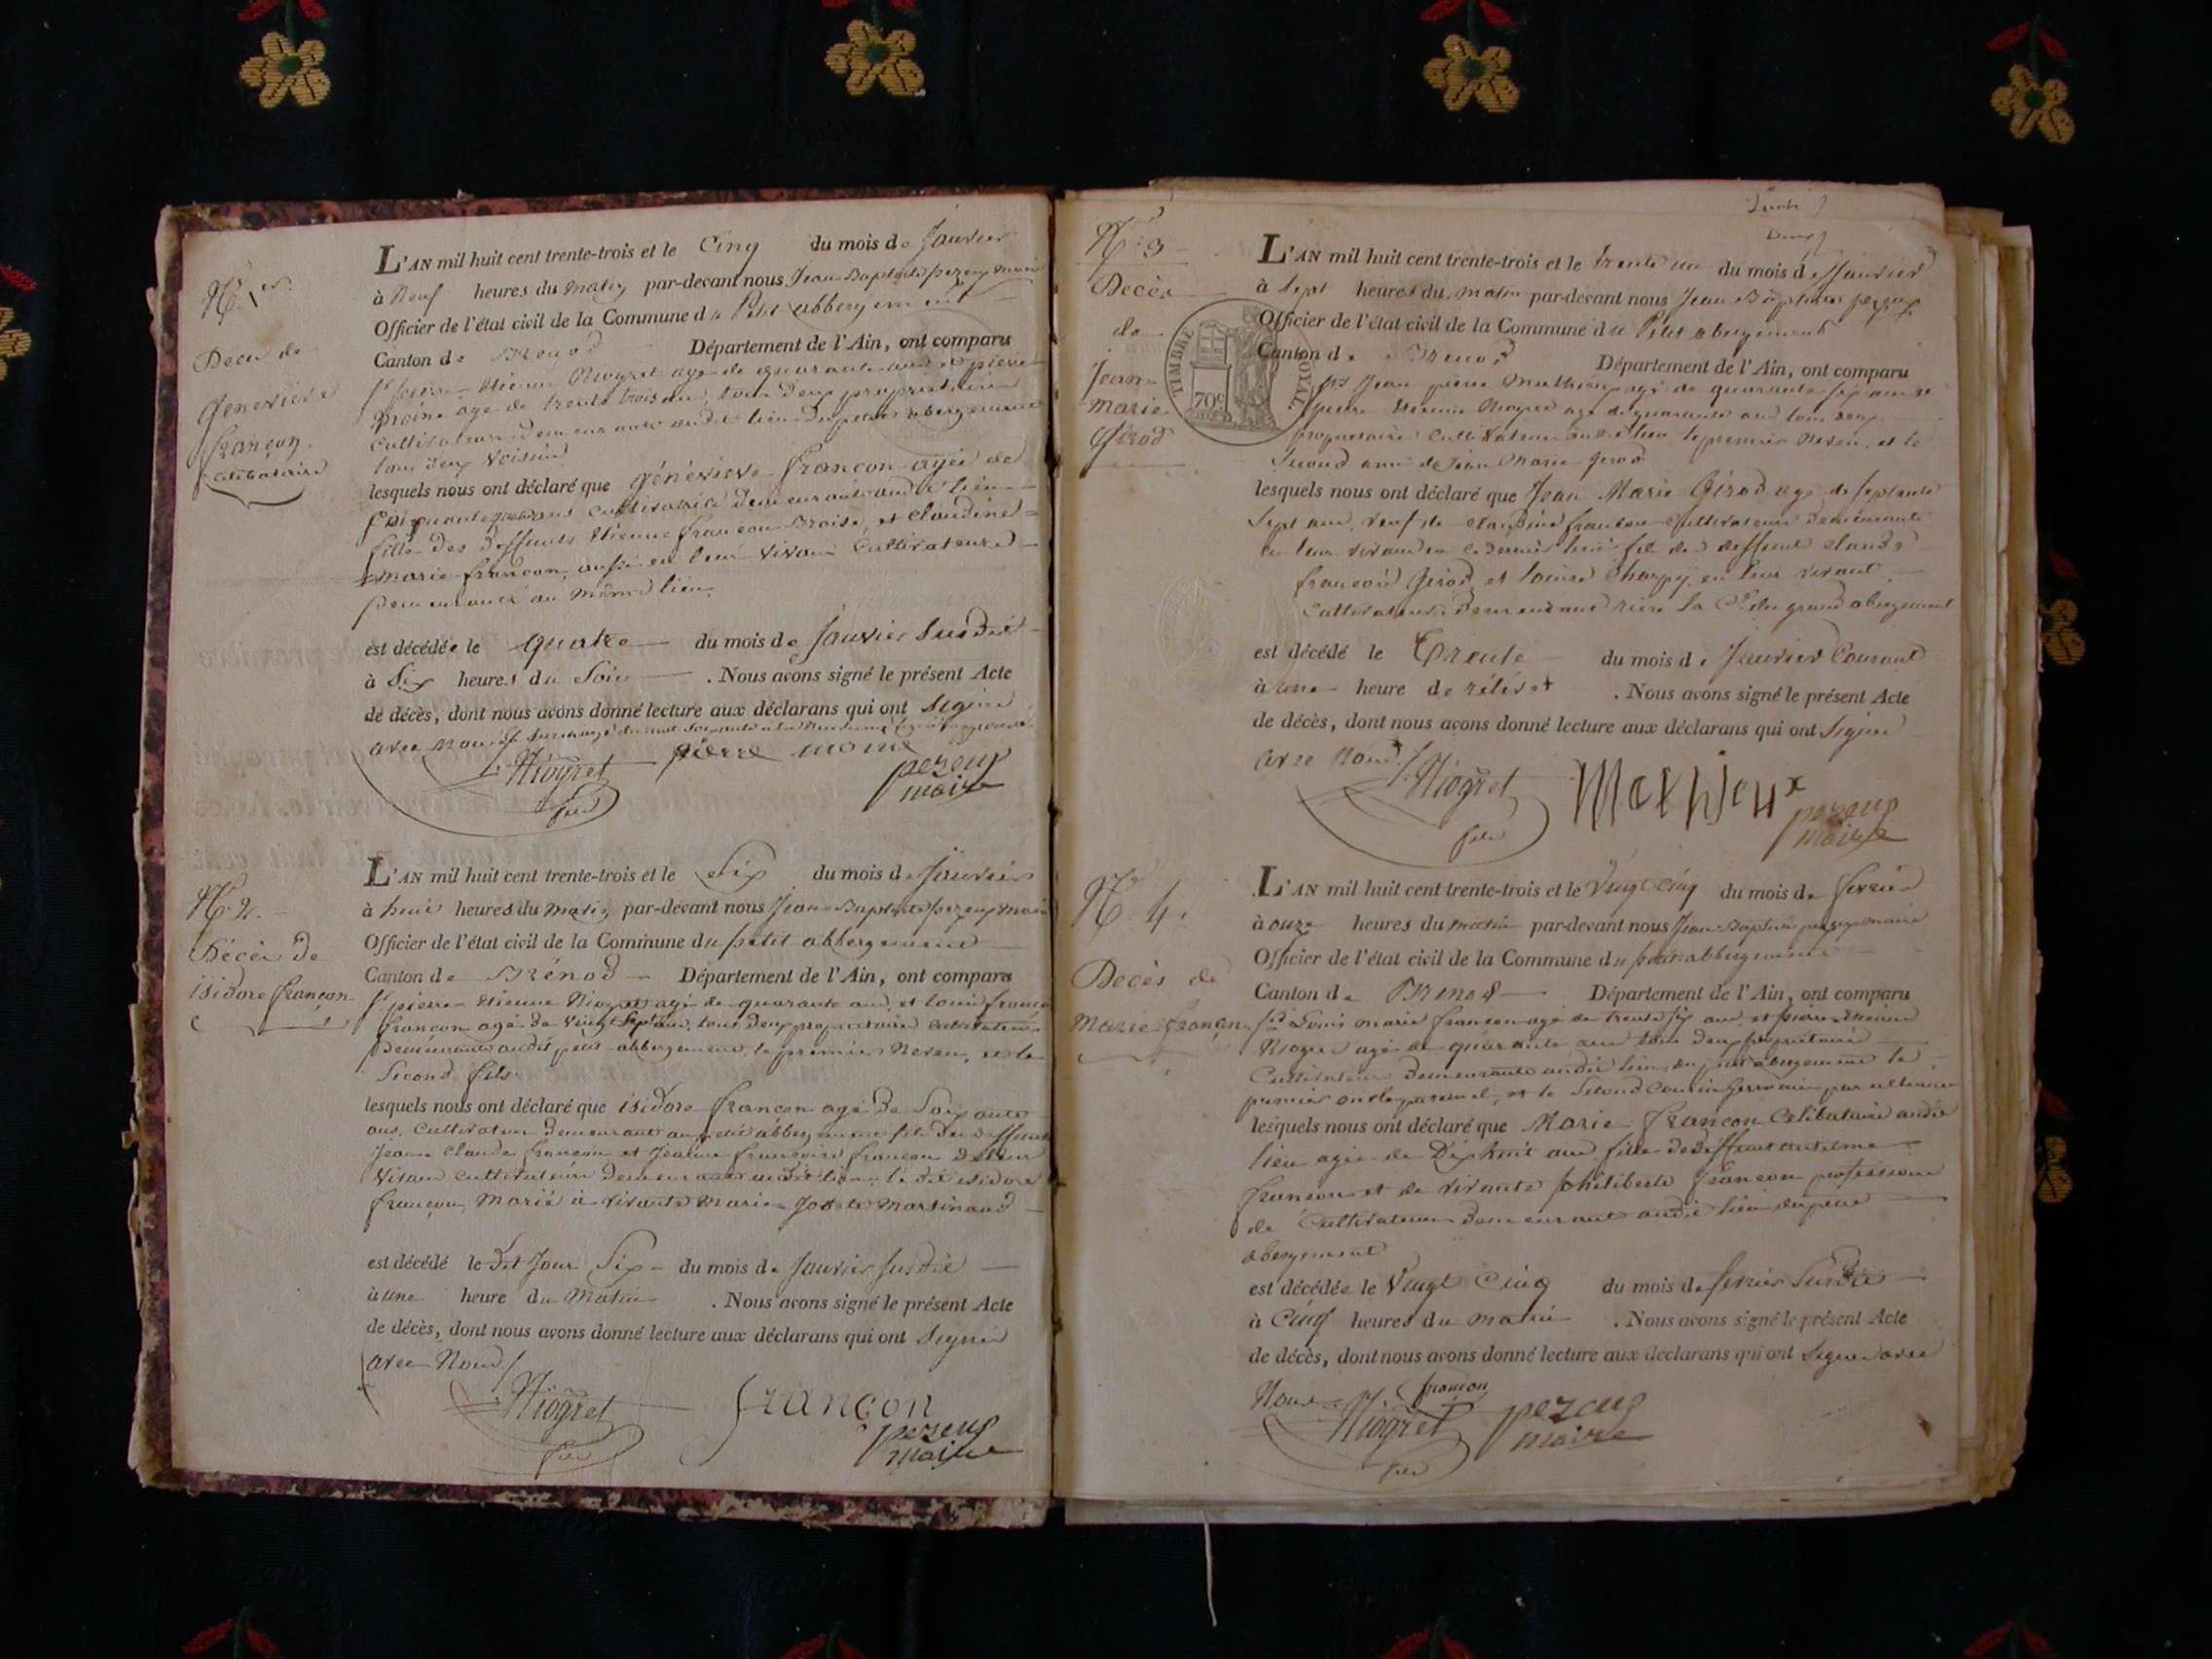 N.º 1er.
Decès de
Genevieve
françon.
celibataire
L'AN mil huit cent trente-trois et le Cinq du mois de Janvier
à Neuf heures du matin par-devant nous Jean-Baptiste pezeux maire
Officier de l'état civil de la Commune du Petit abbergement
Canton de Brenod Département de l'Ain, ont comparu
pierre Etienne Niogret agé de quarante ans et pierre
moine agé de trente trois ans, tous deux proprietaires
Cultivateurs demeurants audit lieu du petit abergement
tous deux voisins
lesquels nous ont déclaré que généviève françon agée de
ans cultivatrice demeurante audit lieu
fille des deffunts Etienne françon Broise, et claudine
marie françon, en leur vivant cultivateurs
demeurants au même lieu.
est décédée le quatre du mois de Janvier susdit
à Six heures du Soir . Nous avons signé le présent Acte
de décès, dont nous avons donné lecture aux déclarans qui ont signé
avec nous
Niogret pierre moine
pezeux
maire
N.º 2.
Décès de
isidore françon
L'AN mil huit cent trente-trois et le Six du mois de Janvier
à huit heures du matin par-devant nous Jean-Baptiste pezeux maire
Officier de l'état civil de la Commune du petit abbergement
Canton de Brénod Département de l'Ain, ont comparu
pierre Etienne Niogret agé de quarante ans, et louis françois
françon agé de vingt sept ans, tous deux proprietaires cultivateurs
demeurants audit petit abbergement, le premier Neveu, et le
Second fils
lesquels nous ont déclaré que isidore françon agé de Soixante
ans, cultivateur demeurant au petit abbergement fils des deffunts
Jean Claude françon et Jeanne françoise françon de leur
vivant cultivateurs demeurants audit lieu le dit isidore
françon, marié à vivante marie Josette
est décédé le dit Jour Six du mois de Janvier susdit
à une heure du matin . Nous avons signé le présent Acte
de décès, dont nous avons donné lecture aux déclarans qui ont signé
avec Nous
Niogret françon
pezeux
maire
N.º 3
Decès
de
Jean-
marie
Girod
TIMBRE ROYAL
70c
L'AN mil huit cent trente-trois et le trente un du mois de Janvier
à Sept heures du matin par-devant nous Jean Baptiste pezeux
Officier de l'état civil de la Commune du Petit abergement
Canton de Brenod Département de l'Ain, ont comparu
Jean pierre Mathieu agé de quarante sept ans et
pierre Etienne Niogret agé de quarante ans tous deux
proprietaires Cultivateurs audit lieu le premier Neveu et le
Second ami de Jean Marie Girod
lesquels nous ont déclaré que Jean Marie Girod agé de septante
sept ans, veuf de claudine françon cultivateurs demeurants
en leur vivant fils des deffunts claude
françois Girod et louise Charpy en leur vivant
cultivateurs demeurants du grand abergement
est décédé le Trente du mois de Janvier Courant
à une heure de rélévé . Nous avons signé le présent Acte
de décès, dont nous avons donné lecture aux déclarans qui ont signé
avec Nous
Niogret Mathieux
pezeux
maire
N.º 4.
Decès de
Marie françon
L'AN mil huit cent trente-trois et le Vingt cinq du mois de fevrier
à onze heures du matin par-devant nous Jean-Baptiste pezeux maire
Officier de l'état civil de la Commune du petit abbergement
Canton de Brenod Département de l'Ain, ont comparu
Louis marie françon agé de trente six ans, et pierre Etienne
Niogret agé de quarante ans tous deux proprietaires
Cultivateurs demeurants audit lieu du petit abergement le
premier oncle paternel, et le Second cousin germain
lesquels nous ont déclaré que Marie françon Celibataire audit
lieu agée de Dixhuit ans fille de deffunt anselme
françon et de vivante philiberte françon profession
de Cultivateurs demeurants audit lieu du petit
abergement
est décédée le Vingt Cinq du mois de fevrier Susdit
à Cinq heures du matin . Nous avons signé le présent Acte
de décès, dont nous avons donné lecture aux déclarans qui ont signé avec
Nous françon
Niogret pezeux
maire